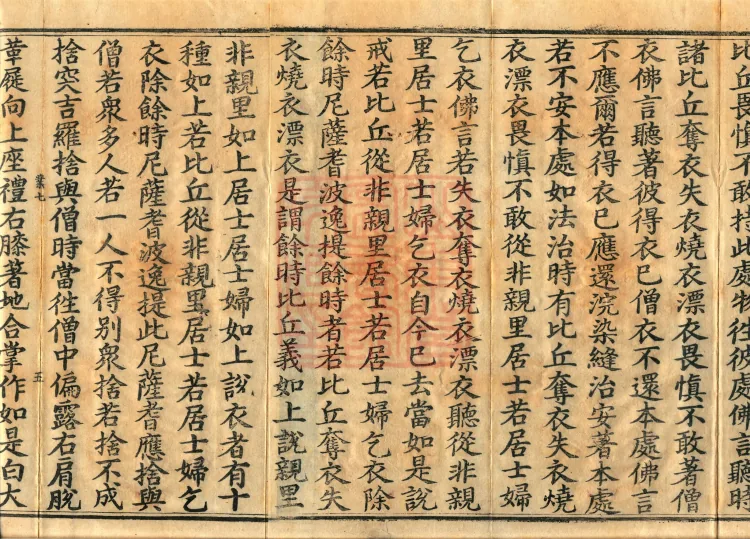 比丘畏慎不敢持此處物往彼處佛言聽時
諸比丘奪衣失衣燒衣漂衣畏慎不敢著僧
衣佛言聽著彼得衣已僧衣不還本處佛言
不應爾若得衣已應還浣染縫治安著本處
若不安本處如法治時有比丘奪衣失衣燒
衣漂衣畏慎不敢從非親里居士若居士婦
乞衣佛言若失衣奪衣燒衣漂衣聽從非親
里居士若居士婦乞衣自今已去當如是說
戒若比丘從非親里居士若居士婦乞衣除
餘時尼薩耆波逸提餘時者若比丘奪衣失
衣燒衣漂衣是謂餘時比丘義如上說親里
非親里如上居士居士婦如上說衣者有十
種如上若比丘從非親里居士若居士婦乞
衣除餘時尼薩耆波逸提此尼薩耆應捨與
僧若衆多人若一人不得別衆捨若捨不成
捨突吉羅捨與僧時當往僧中偏露右肩脫
業七 五
革屣向上座禮右膝著地合掌作如是白大